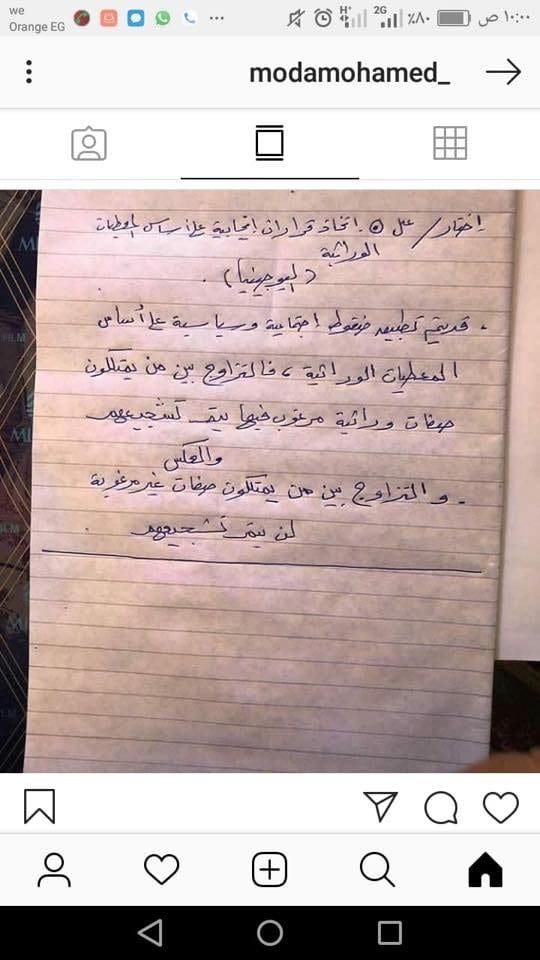 we
Orange EG
2G
H+
٪٨٠
١٠:٠٠ ص
modamohamed_
إختار / علل اتخاذ قرارات إنجابية على أساس المعطيات
الوراثية
(اليوجينيا).
قد يتم تطبيق ضغوط اجتماعية وسياسية على أساس
المعطيات الوراثية، فالتزاوج بين من يمتلكون
صفات وراثية مرغوب فيها يتم تشجيعهم
والعكس
- والتزاوج بين من يمتلكون صفات غير مرغوبة
لن يتم تشجيعهم